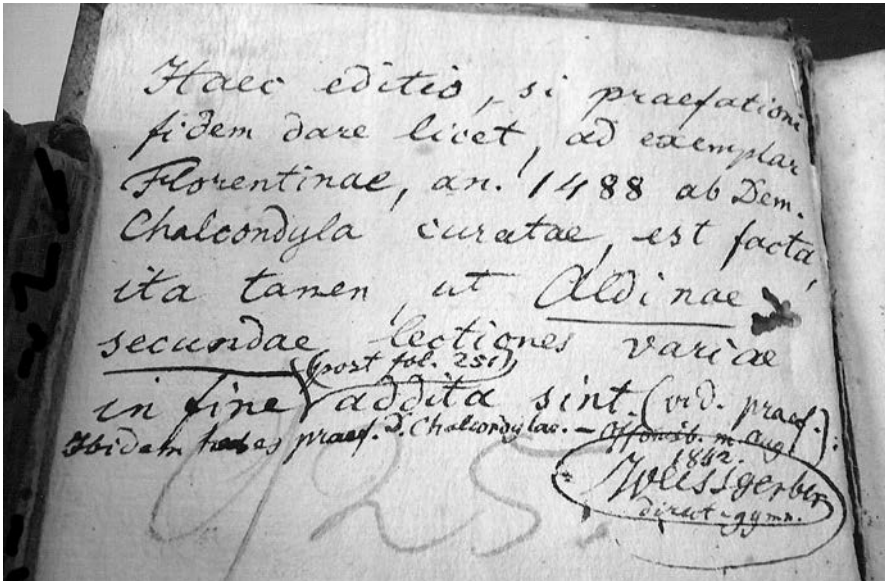 Haec editio, si praefationi
fidem dare licet, ad exemplar
Florentinae, an. 1488 ab Dem.
Chalcondyla curatae, est facta,
ita tamen, ut Aldinae
secundae lectiones variae
(post fol. 251)
in fine addita sint. (vid. praef.).
Ibidem habes praef. d. Chalcondylae. – Offonib. m. Aug.
1842.
Weissgerber
direct. gymn.
925